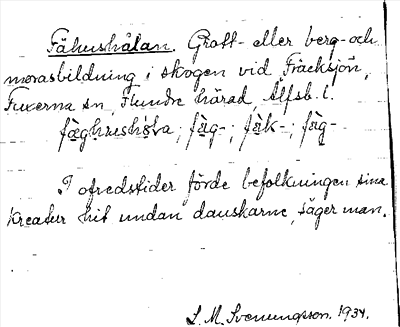 Fähushålan. Grott- eller berg- och
morasbildning i skogen vid Fräcksjön,
Fuxerna sn, Flundre härad, Älfsb. l.
fæghushåla; fäg-; fäk-; fäg-
I ofredstider förde befolkningen sina
kreatur hit undan danskarne, säger man.
S. M. Svenungsson. 1934.